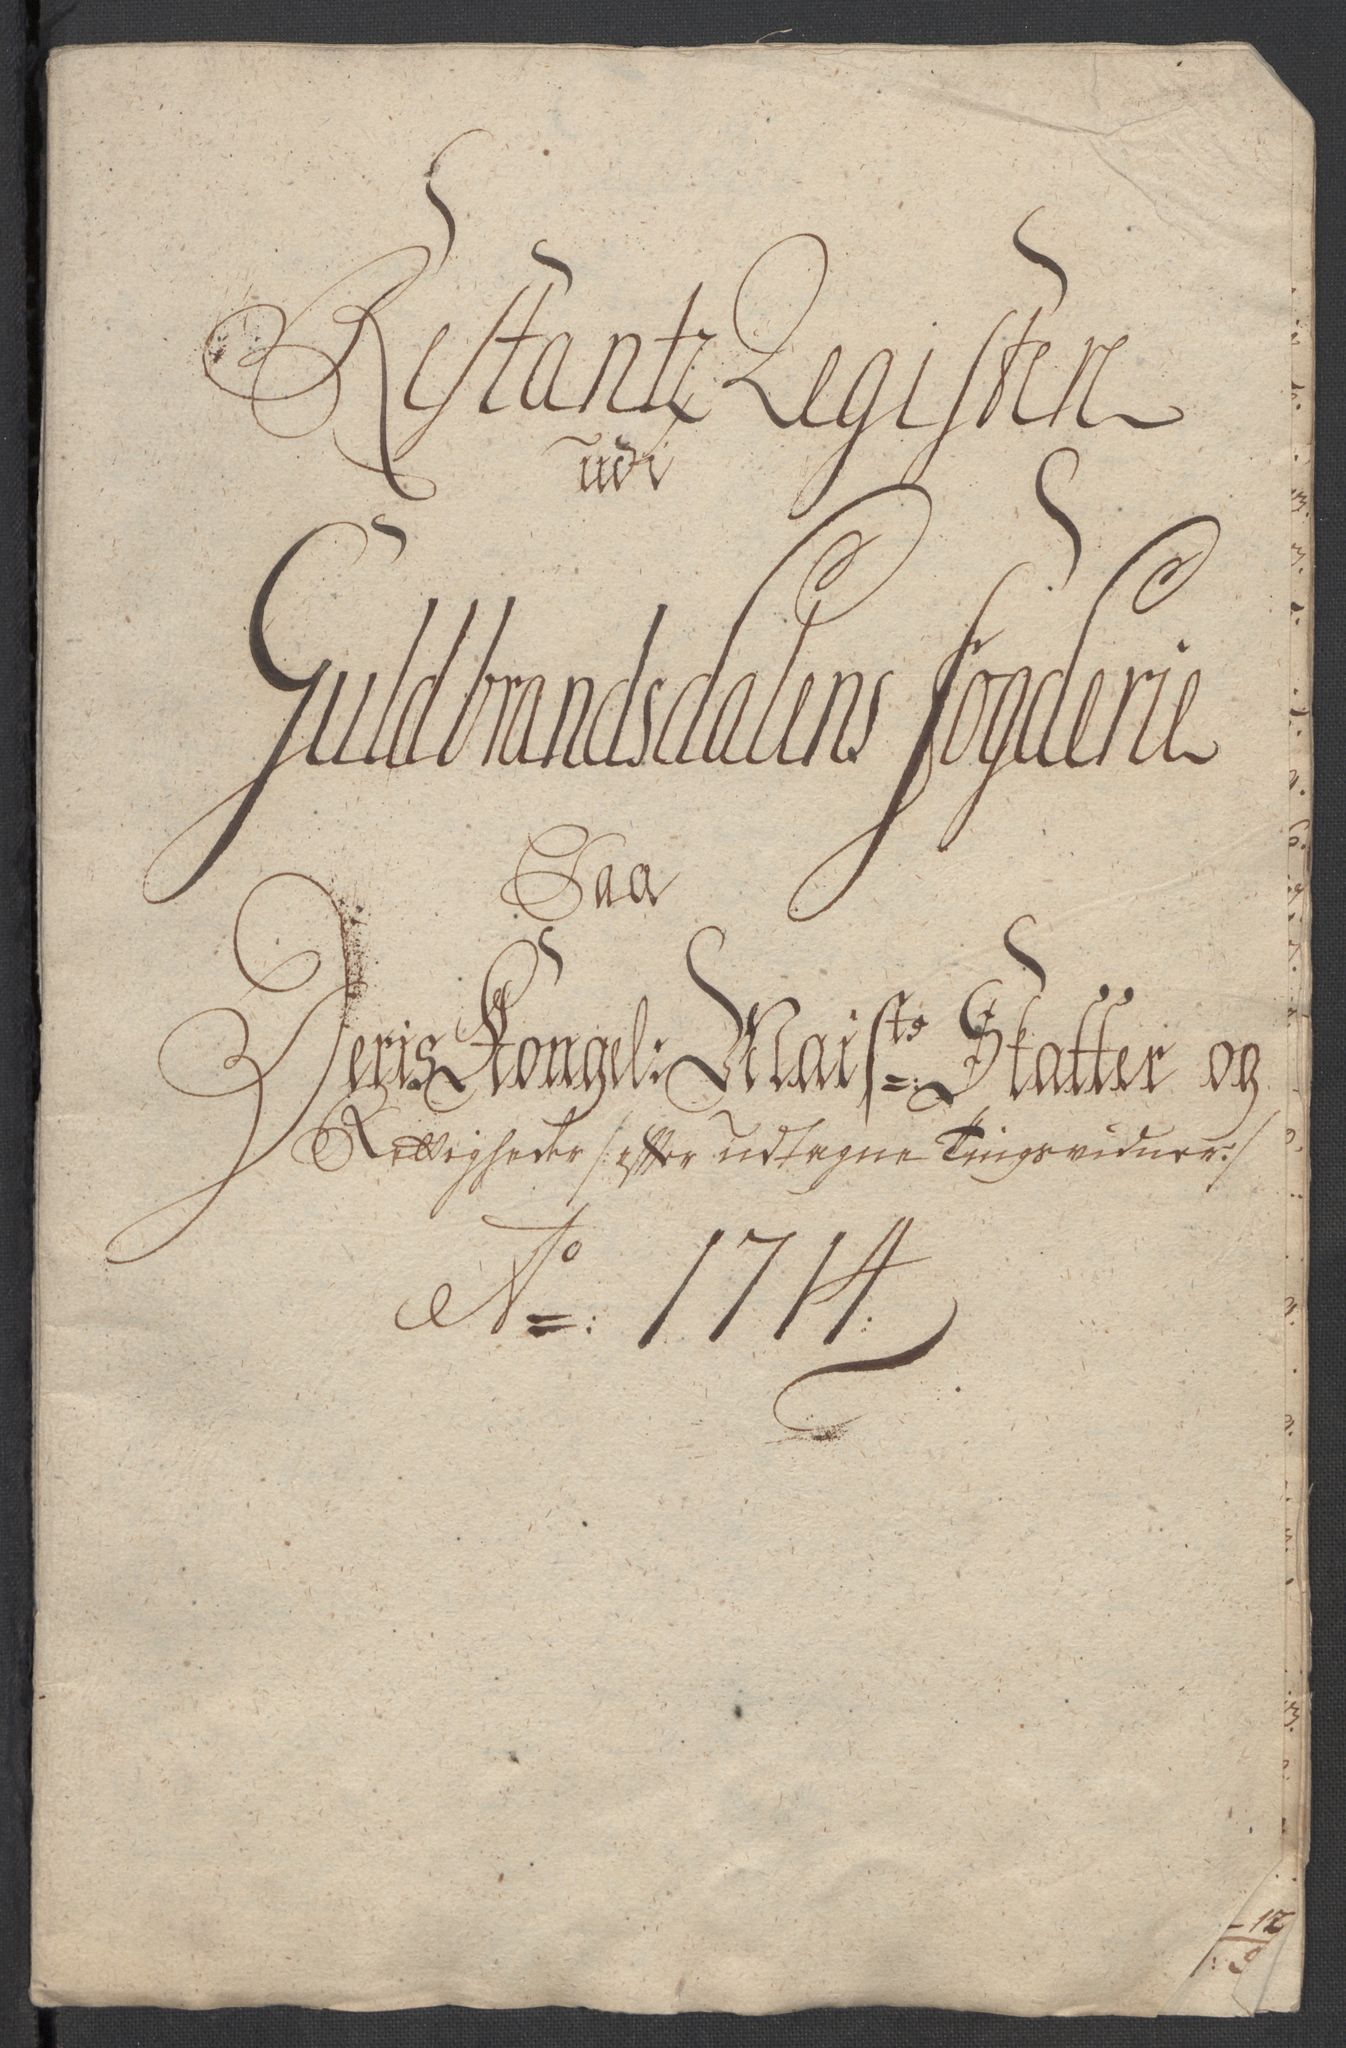 Restantz Register
udi
Guldbrandsdalens fogderie
Paa
Deris Kongel: Maiste: Skatter og
Rettigheder /: efter udtagne Tingsvidner :/
Ao: 1714
12
9